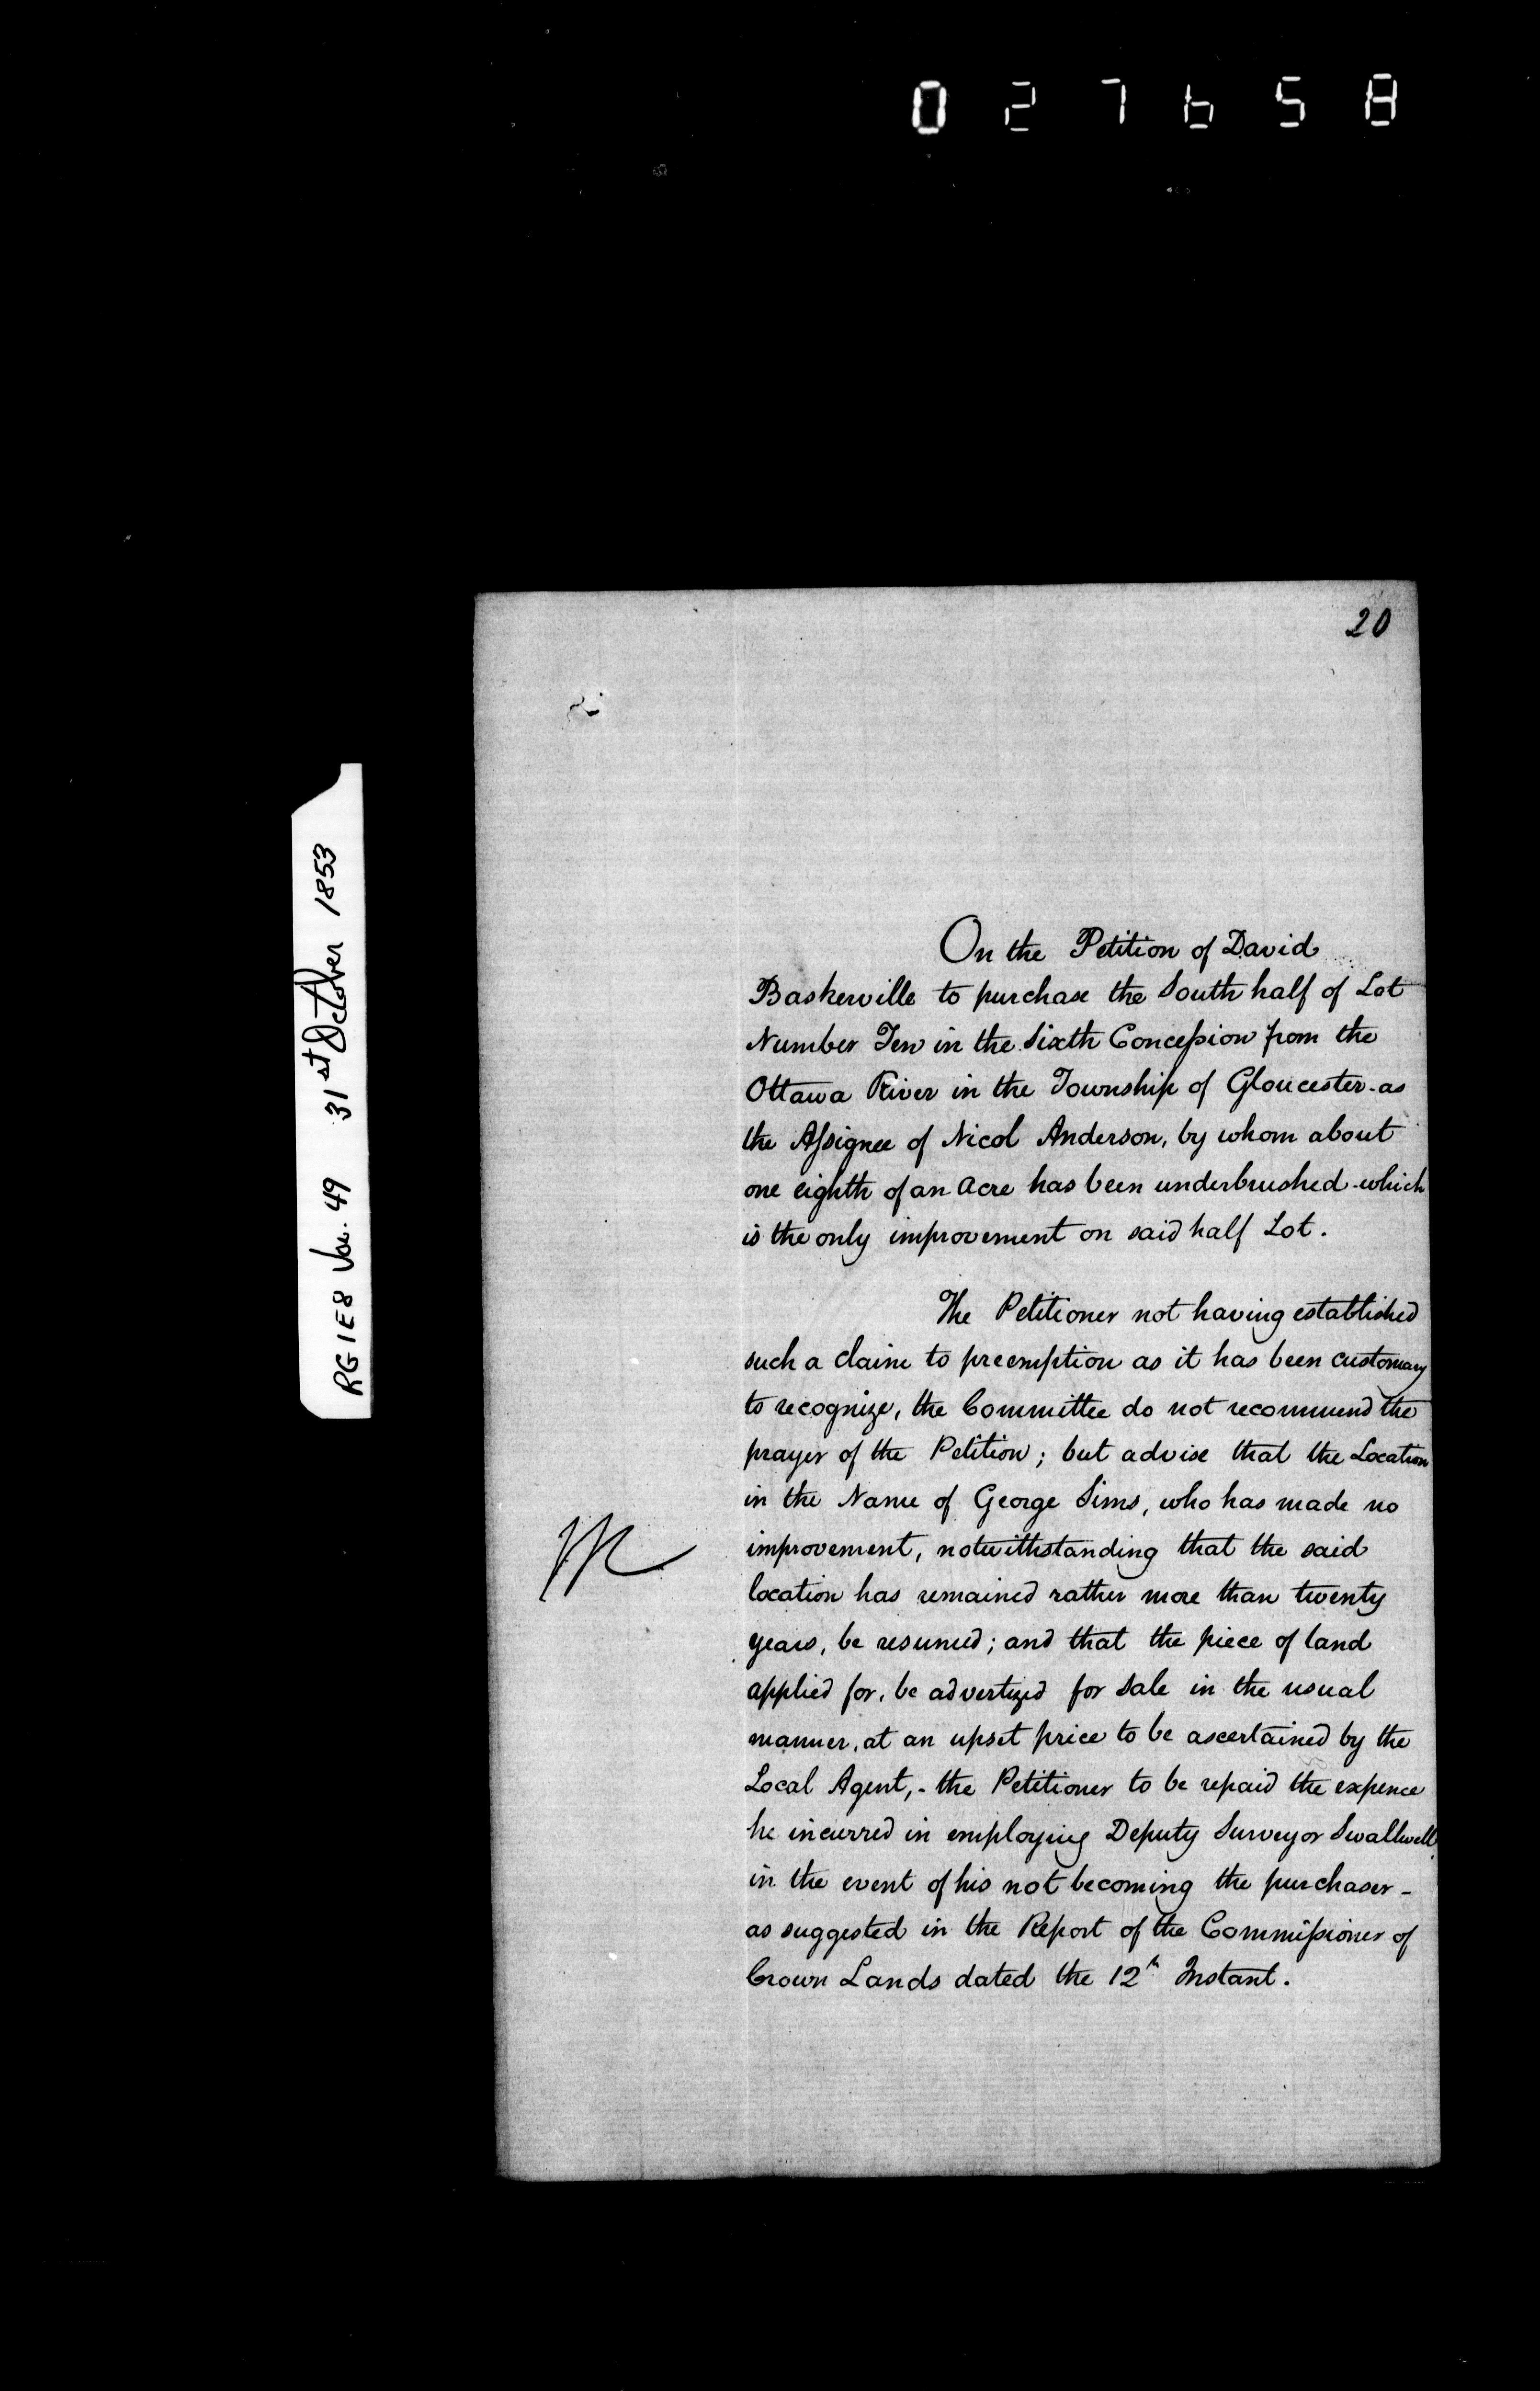 027658
RG 1 E8 Vol. 49 31st October 1853
20
On the Petition of David
Baskerville to purchase the South half of Lot
Number Ten in the Sixth Concession from the
Ottawa River in the Township of Gloucester - as
the Assignee of Nicol Anderson, by whom about
one eighth of an Acre has been underbrushed - which
is the only improvement on said half Lot.
The Petitioner not having established
such a claim to preemption as it has been customary
to recognize, the Committee do not recommend the
prayer of the Petition; but advise that the Location
in the Name of George Sims, who has made no
improvement, notwithstanding that the said
location has remained rather more than twenty
years, be resumed; and that the piece of land
applied for, be advertized for sale in the usual
manner, at an upset price to be ascertained by the
Local Agent, - the Petitioner to be repaid the expence
he incurred in employing Deputy Surveyor Swallwell,
in the event of his not becoming the purchaser -
as suggested in the Report of the Commissioner of
Crown Lands dated the 12th Instant.